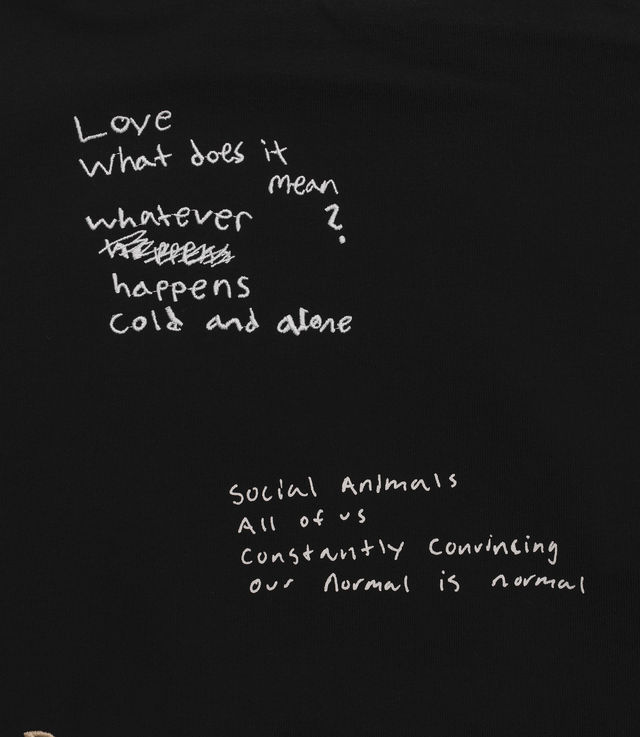 Love
What does it
mean
whatever ?
happens
cold and alone
Social Animals
All of us
Constantly Convincing
our Normal is normal